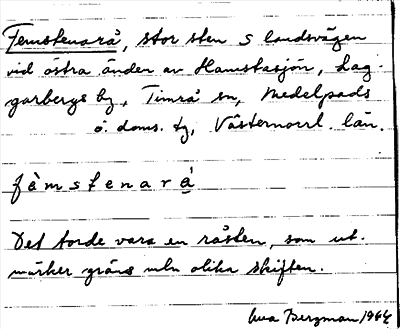 Femstenarå, stor sten S landsvägen
vid östra änden av Hamstasjön, Lag-
garbergs by, Timrå sn, Medelpads
ö. doms. tg, Västernorrl. län.
fèmstenarå̀
Det torde vara en råsten, som ut-
märker gräns mln olika skiften.
Bergman 1964